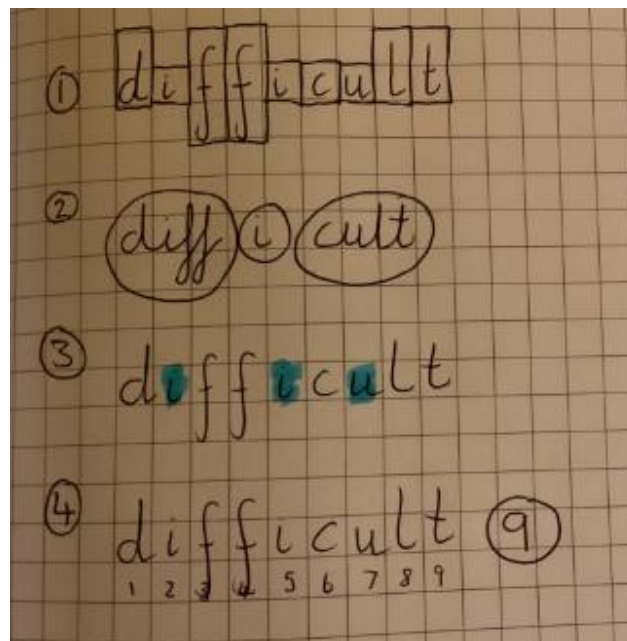 ① difficult
② diff i cult
③ difficult
④ difficult 9
1 2 3 4 5 6 7 8 9